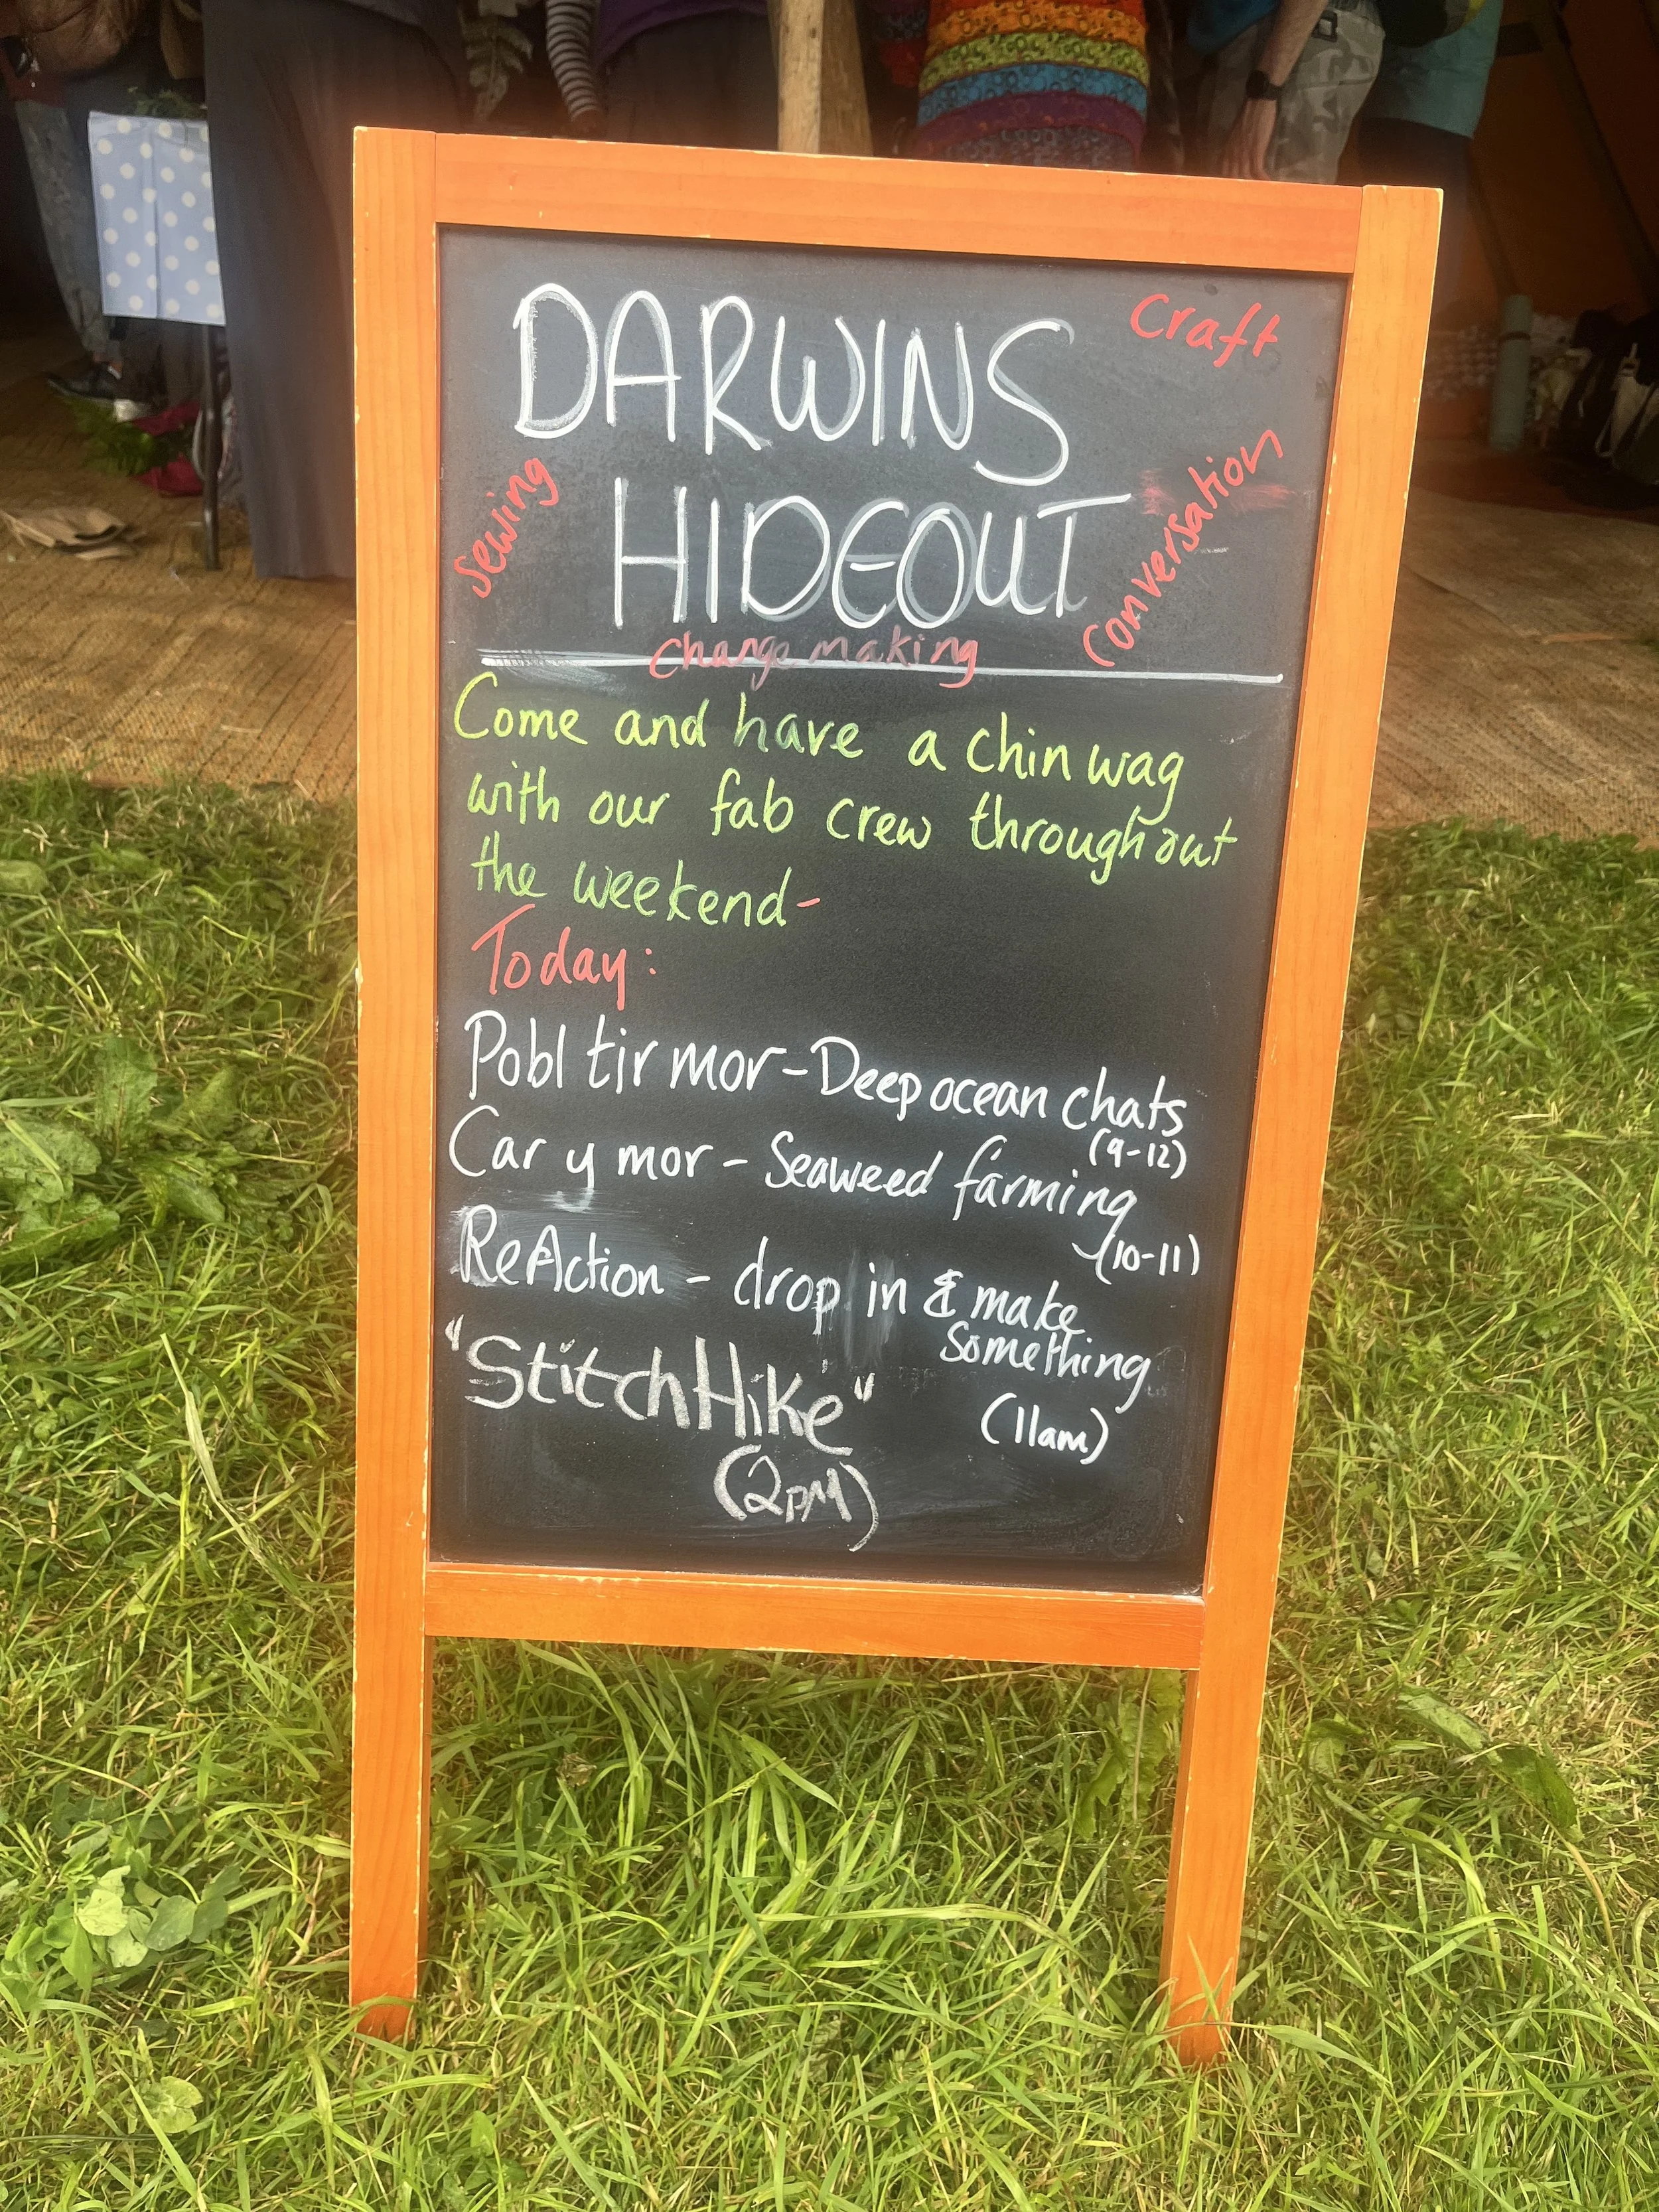 DARWINS
Craft
HIDEOUT
Sewing
Conversation
Changemaking
Come and have a chin wag
with our fab crew throughout
the weekend-
Today:
Pobl tir mor - Deep ocean chats
(9-12)
Car y mor - Seaweed farming
(10-11)
ReAction - drop in & make
Something
(11am)
"StitchHike"
(2PM)